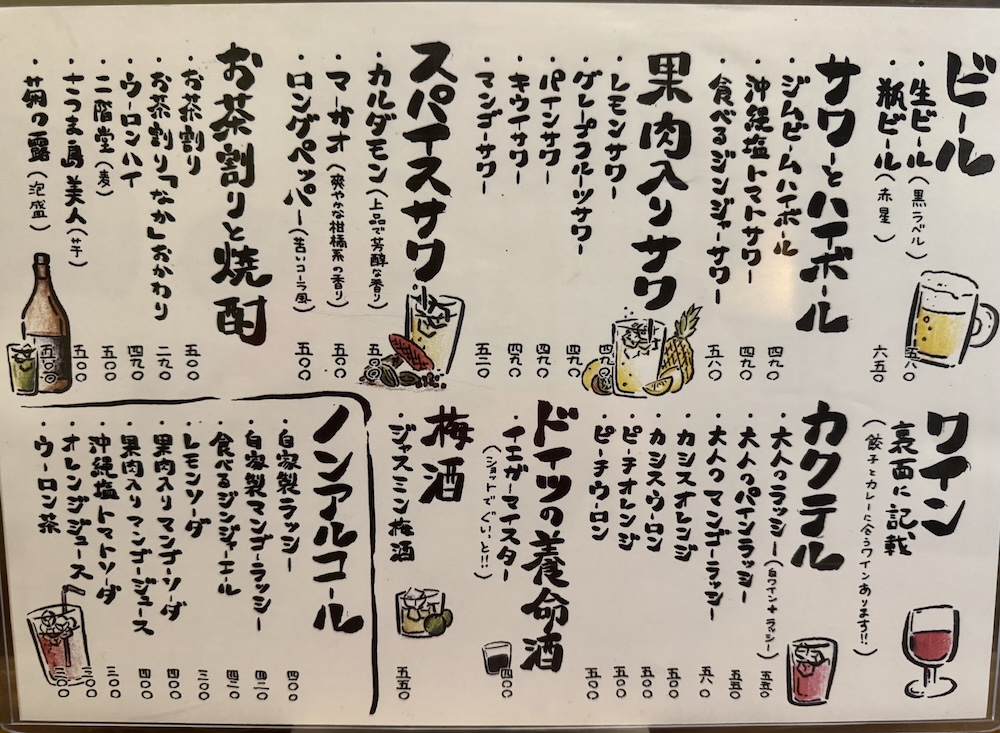 ビール
・生ビール(黒ラベル) 五八〇
・瓶ビール(赤星) 六五〇
サワーとハイボール
・ジムビームハイボール 四九〇
・沖縄塩トマトサワー 四九〇
・食べるジンジャーサワー 五八〇
果肉入りサワー
・レモンサワー 四九〇
・グレープフルーツサワー 四九〇
・パインサワー 四九〇
・キウイサワー 四九〇
・マンゴーサワー 五二〇
スパイスサワー
・カルダモン(上品で芳醇な香り) 五〇〇
・マーガオ(爽やかな柑橘系の香り) 五〇〇
・ロングペッパー(苦いコーラ風) 五〇〇
お茶割りと焼酎
・お茶割り 五〇〇
・お茶割り「なか」おかわり 二九〇
・ウーロンハイ 四九〇
・二階堂(麦) 五〇〇
・さつま島美人(芋) 五〇〇
・菊の露(泡盛) 五〇〇
ワイン
裏面に記載
(餃子とカレーに合うワインあります!!)
カクテル
・大人のラッシー(白ワイン+ラッシー) 五五〇
・大人のパインラッシー 五五〇
・大人のマンゴーラッシー 五八〇
・カシスオレンジ 五〇〇
・カシスウーロン 五〇〇
・ピーチオレンジ 五〇〇
・ピーチウーロン 五〇〇
ドイツの養命酒
・イエガーマイスター 四〇〇
(ショットでぐいっと!!)
梅酒
・ジャスミン梅酒 五五〇
ノンアルコール
・自家製ラッシー 四〇〇
・自家製マンゴーラッシー 四二〇
・食べるジンジャーエール 四二〇
・レモンソーダ 三〇〇
・果肉入りマンゴーソーダ 四〇〇
・果肉入りマンゴージュース 四〇〇
・沖縄塩トマトソーダ 三〇〇
・オレンジジュース 三〇〇
・ウーロン茶 三〇〇